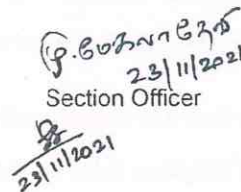 மு.மேகலாதேவி
23/11/2021
Section Officer
23/11/2021